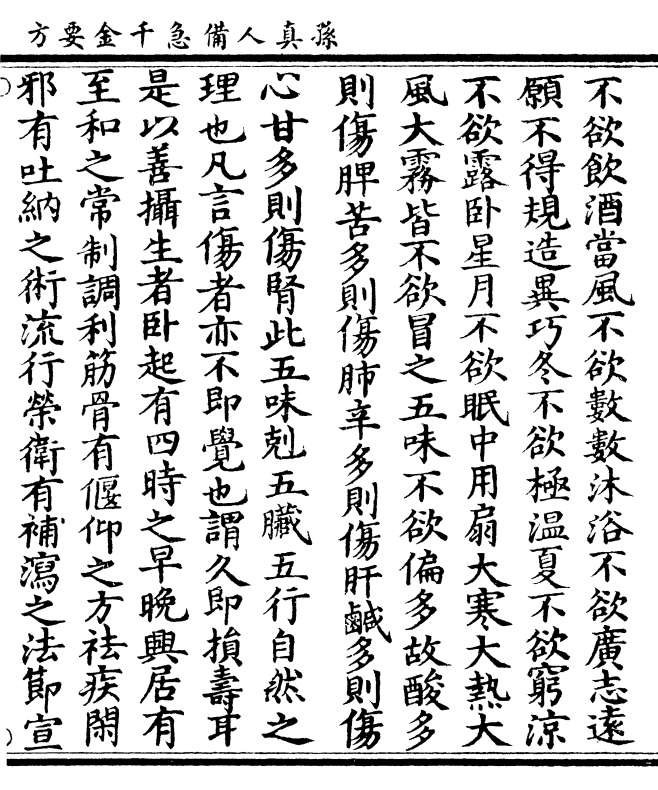 孫真人備急千金要方
不欲飲酒當風不欲數數沐浴不欲廣志遠
願不得規造異巧冬不欲極温夏不欲窮涼
不欲露卧星月不欲眠中用扇大寒大熱大
風大霧皆不欲冒之五味不欲偏多故酸多
則傷脾苦多則傷肺辛多則傷肝鹹多則傷
心甘多則傷腎此五味剋五臟五行自然之
理也凡言傷者亦不即覺也謂久即損壽耳
是以善攝生者卧起有四時之早晚興居有
至和之常制調利筋骨有偃仰之方祛疾閑
邪有吐納之術流行榮衛有補瀉之法節宣